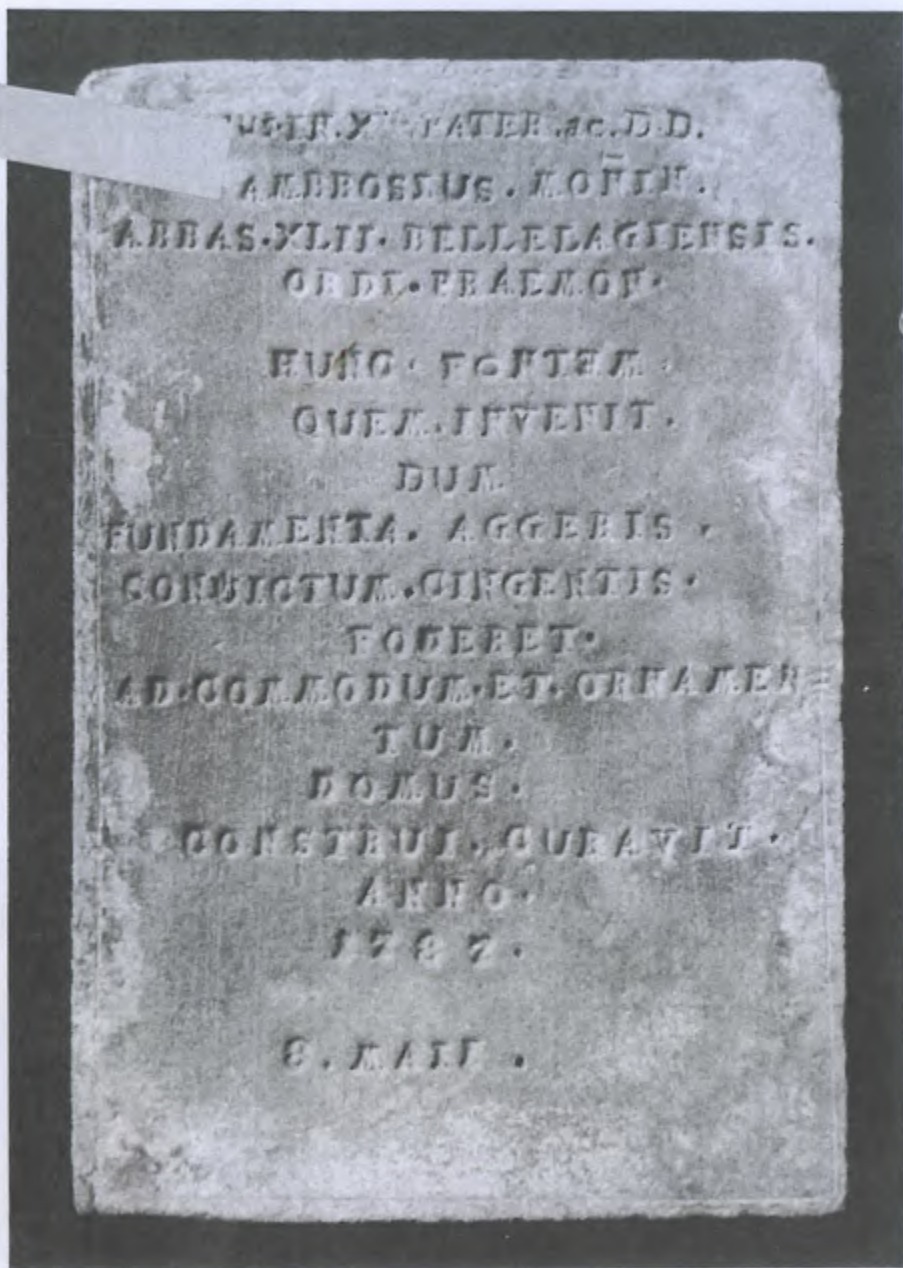 IN. X PATER . ac. D. D.
AMBROSIUS . MOÑIN.
ABBAS. XLII. BELLELAGIENSIS.
ORDI. PRAEMON.
HUNC. FONTEM.
QUEM. INVENIT.
DUM
FUNDAMENTA. AGGERIS.
CONVICTUM. CINGENTIS.
FODERET.
AD. COMMODUM. ET. ORNAMEN=
TUM.
DOMUS.
CONSTRUI. CURAVIT.
ANNO.
1787.
8. MAII.